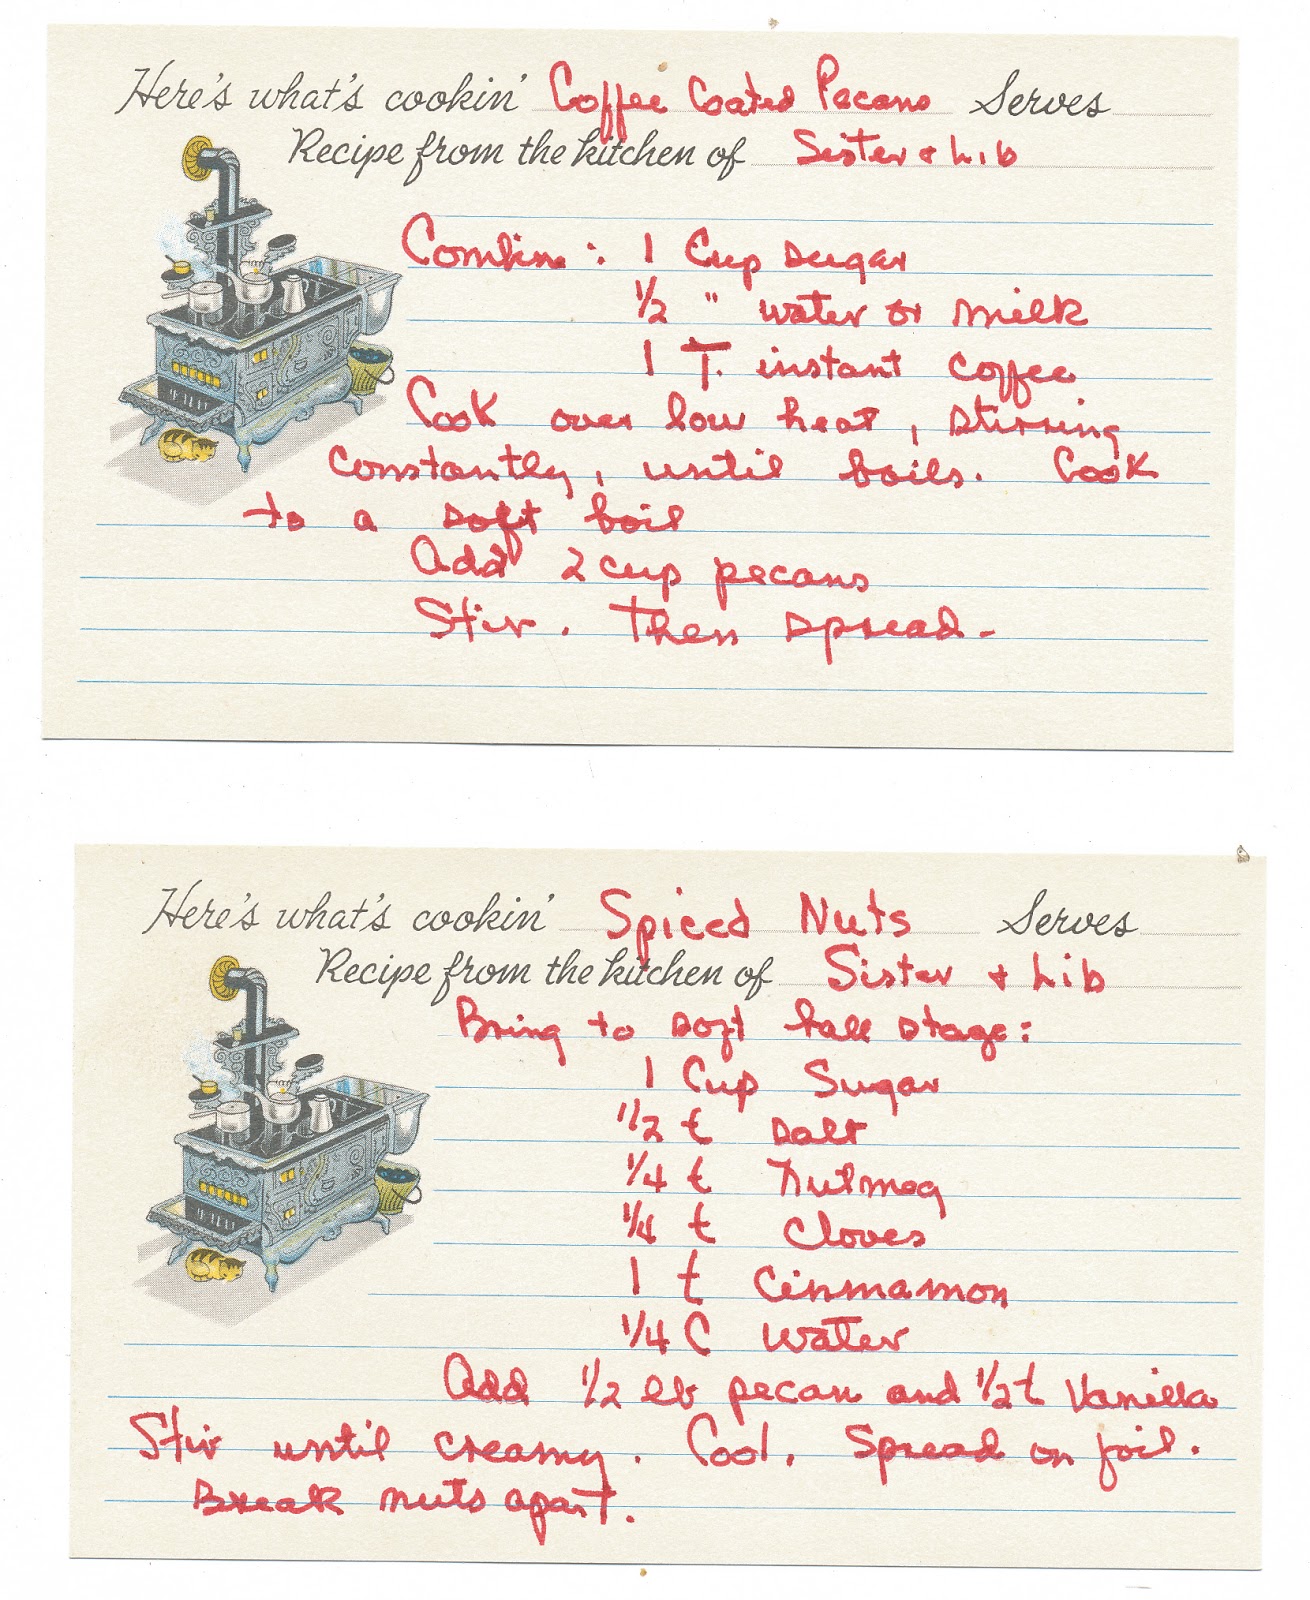 Here's what's cookin' Coffee Coated Pecans Serves
Recipe from the kitchen of Sister + Lib
Combine: 1 Cup sugar
1/2 " water or milk
1 T. instant coffee
Cook over low heat, stirring
constantly, until boils. Cook
to a soft boil
Add 2 cup pecans
Stir. Then spread.
Here's what's cookin' Spiced Nuts Serves
Recipe from the kitchen of Sister + Lib
Bring to soft ball stage:
1 Cup Sugar
1/2 t salt
1/4 t Nutmeg
1/4 t Cloves
1 t Cinnamon
1/4 C water
Add 1/2 lb pecan and 1/2 t Vanilla
Stir until creamy. Cool. Spread on foil.
Break nuts apart.